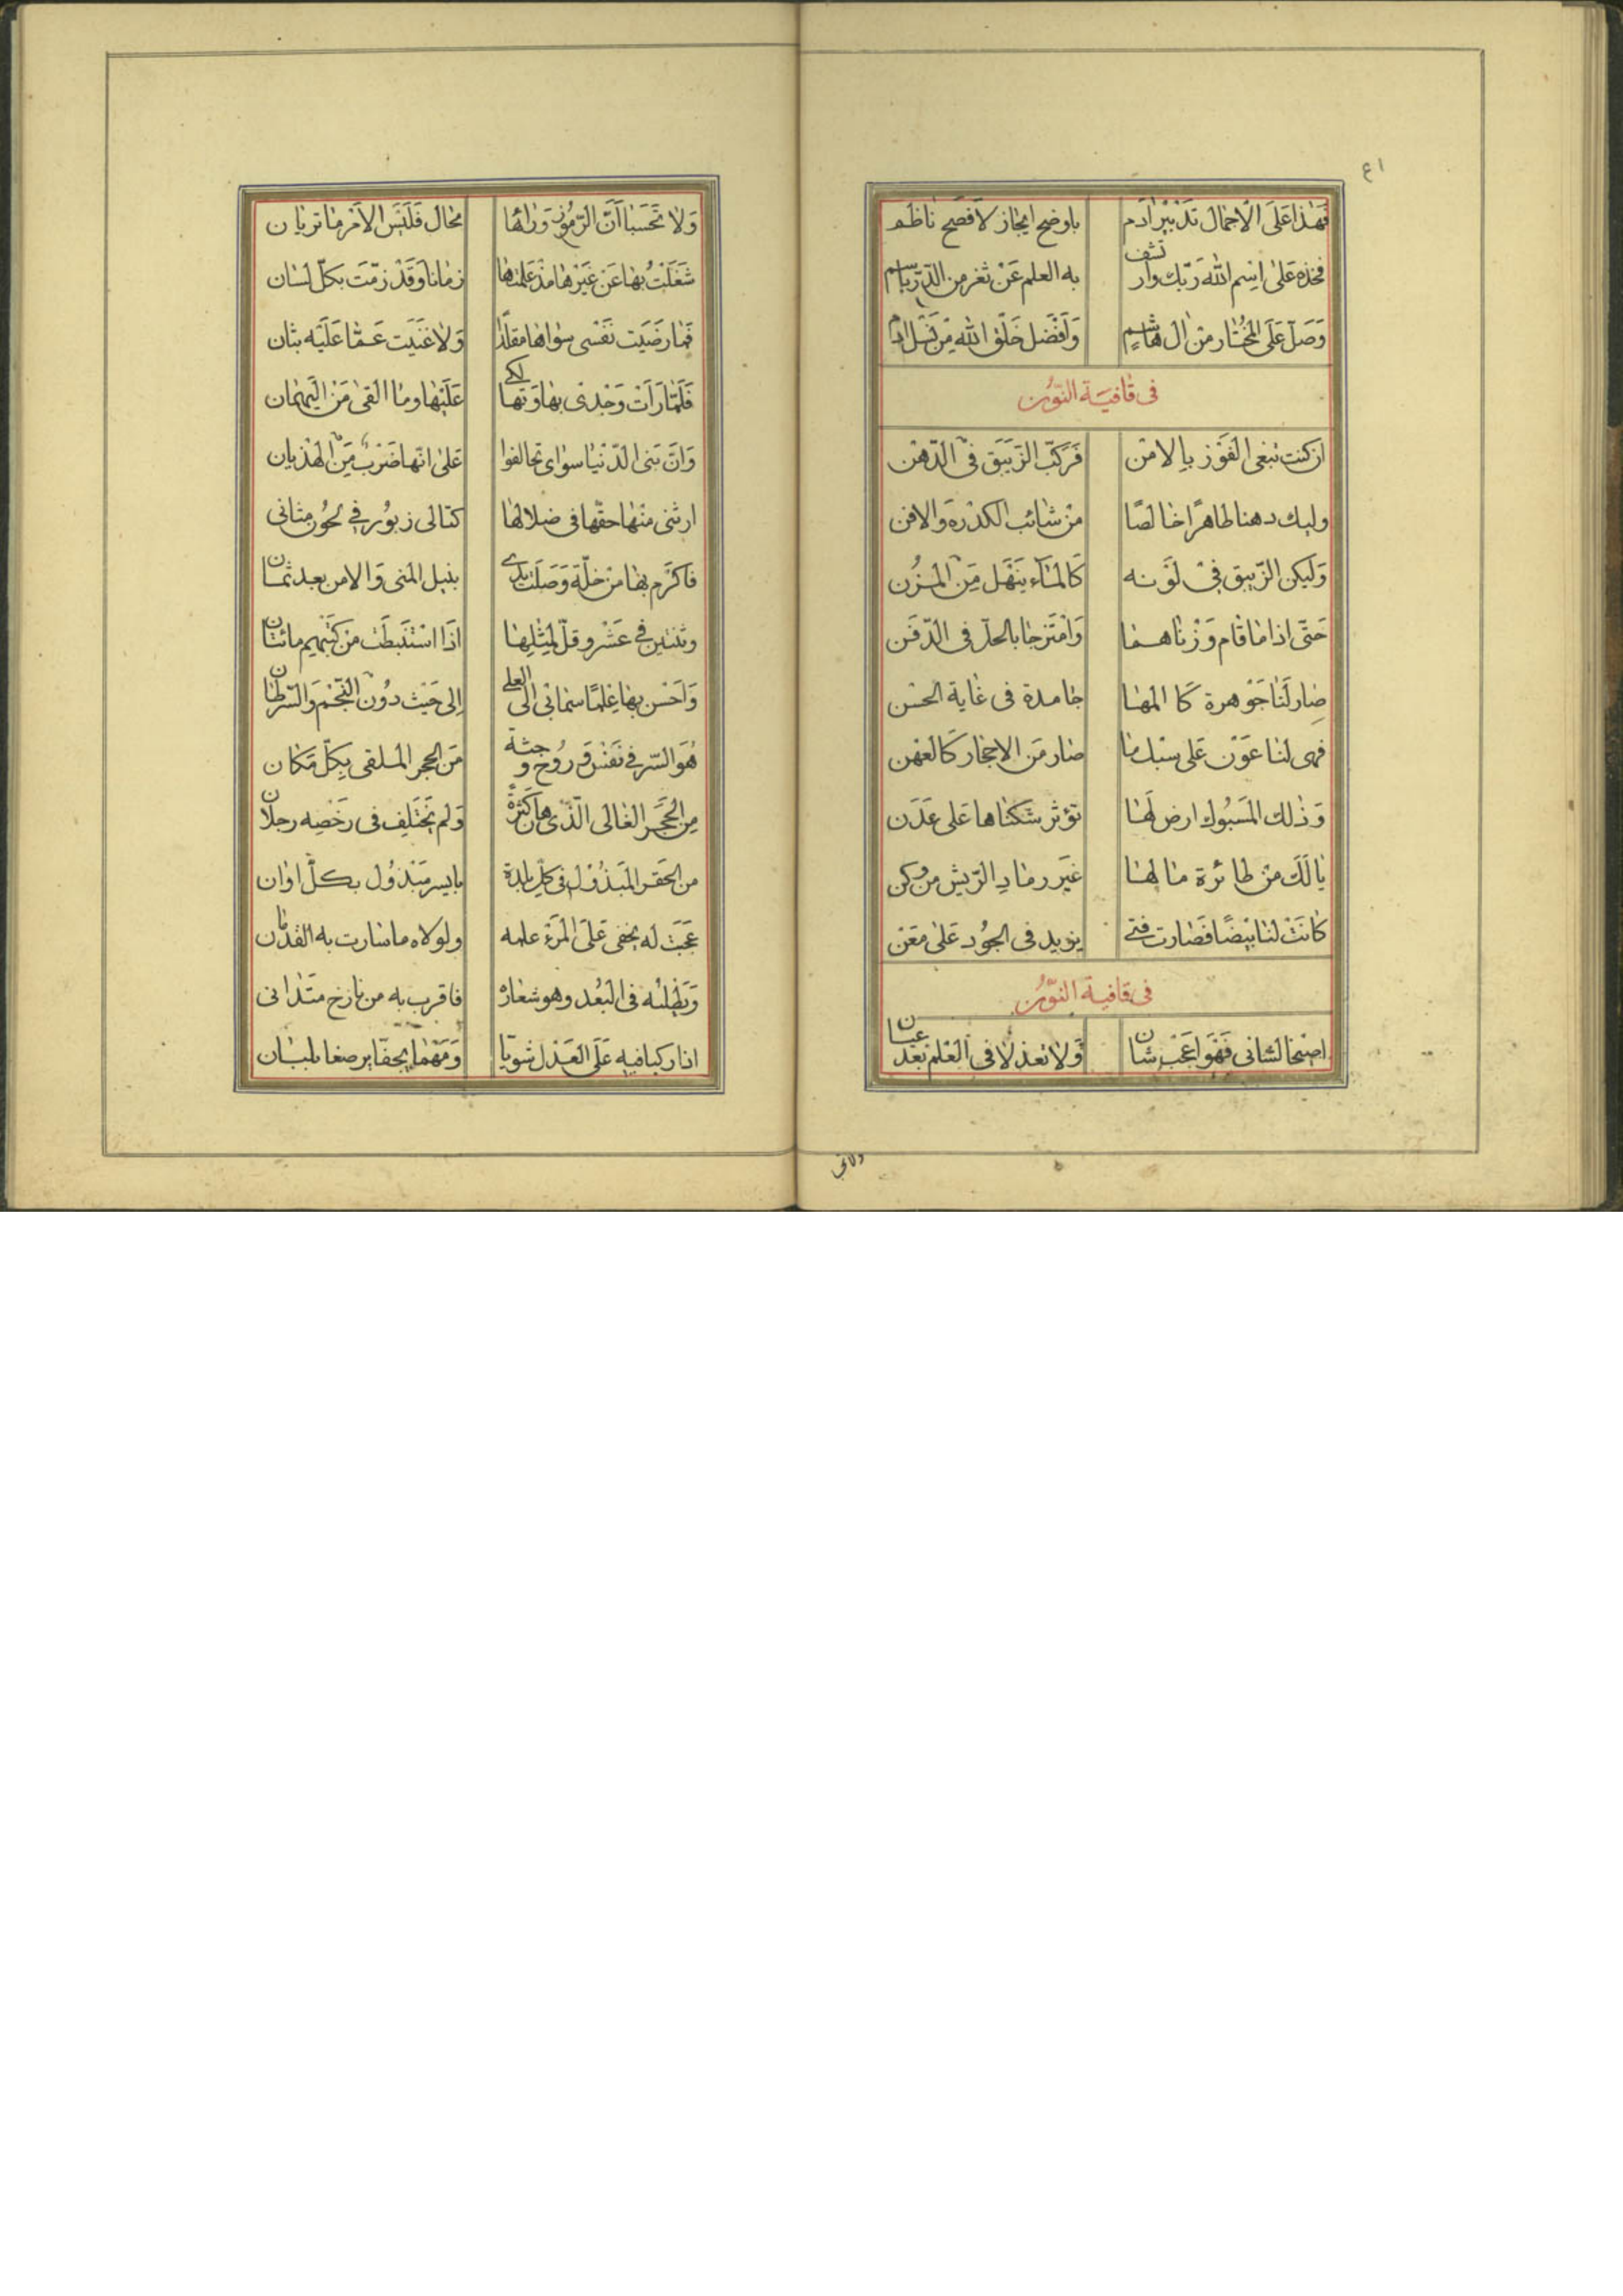 ٤١
فَهٰذا عَلَى الاجمال تَدْبيرُ ادَم باوضح ايجاز لا فصَح ناظم
فخذه عَلىٰ اسِم الله رَبّك وار تشف به العلم عَنْ ثغر من الدّر باسم
وَصَلّ عَلَى المخُتار منْ ال هٰاشم وَافضَل خلق الله مِنْ نَسْل ادم
فى قافيَة النّون
ان كنت تبغى الفَوْز بالامْن فَركّب الزّيبَق فىْ الدّهن
وليك دهنا طاهرًا خالصًا منْ شائب الكدْرة والافن
وَليكن الزّيبق فىْ لوْنه كالمآء يَنْهَل مِنَ المُزْن
حَتّى اذا ما قام وَزْناهما وَامْتزجا بالحلّ فى الدّفن
صٰار لنا جَوْهرة كالمها جامدة فى غاية الحسْن
فهى لنا عَوْن عَلى سَبْك ما صٰار مَن الاحجٰار كَالعهن
وَذٰلك المَسبُوك ارض لَها تؤثر سكناها عَلى عَدَن
يا لَكَ منْ طائرة ما لها غيَر رماد الرّيش من وكن
كانَتْ لنا بَيْضًا فَصٰارت فتى يزيد فى الجوُد عَلىٰ معْن
فى قافية النّون
اصْيخا لشانى فَهْوَ اعَجَب شان وَلا تعذلا فى العْلم بَعْد عيان
ولا تح
وَلا تَحْسَبا اَنّ الرّمُوز وَرائها محٰال فَلَيْسَ الاَمْر ما تريان
شَغَلْتُ بها عَنْ غَيْرها مذْ عَلمتها زمٰانا وَقَدْ زمّت بكلّ لسٰان
فَما رضَيَت نفْسى سوٰاها مقلّدًا وَلا غنَيَت عَمّا عَلَيْه بثان
فَلَمّا رَأت وَجْدى بهٰا وَتهالكى عَلَيْها ومٰا القىٰ مَنْ الهيَمان
وَانّ بَنى الدّنْيٰا سوٰاى تحالفوا عَلىٰ انّها ضَرْبٌ مِنَ الهذيان
ارتنى منْها حقّها فى ضلالها كتالى زبوُر فى لحوُن مثانى
فاكرم بها منْ خلّة وَصَلَتْ يدى بنيل المنى وَالامن بعد ثمان
وثنتين فى عَشْر وقلّ لمِثْلها اذَا اسْتنَبطَت منْ كتبْهم مائتان
وَاحْسن بها عِلمًا سَما بى الى العلى اِلى حَيْث دوُن النّجْم وَالسّرطان
هُوَ السّر فى نَفْس وَ روُح وَ جثة مَن الحجر المُلقى بكِلّ مَكان
مِن الحُجَر الغٰالى الّذى هان كثرةً وَلم يَخْتلِف فى رَخْصه رجلان
من الحَقر المَبْذوُل فى كلّ بلدة بايسر مَبْذوُل بكلّ اوان
عَجَبَت لَه يخفى عَلى المَرْء علمه ولولاه ما سٰارت به القدمان
وَيَطْلبُه فى البُعْد وهو شعٰارهُ فاقرب به من نازح متَدٰانى